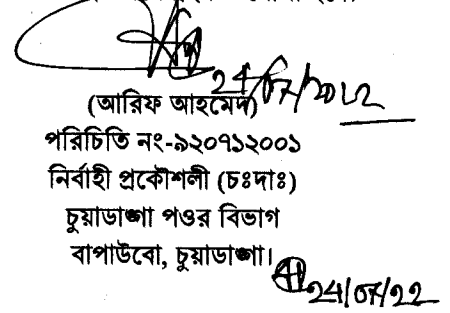 24/07/2022
(আরিফ আহমেদ)
পরিচিতি নং-৯২০৭১২০০১
নির্বাহী প্রকৌশলী (চঃদাঃ)
চুয়াডাঙ্গা পওর বিভাগ
বাপাউবো, চুয়াডাঙ্গা।
24/07/22